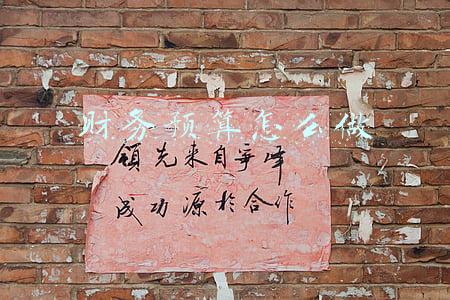 财务预算怎么做
领先来自争峰
成功源於合作